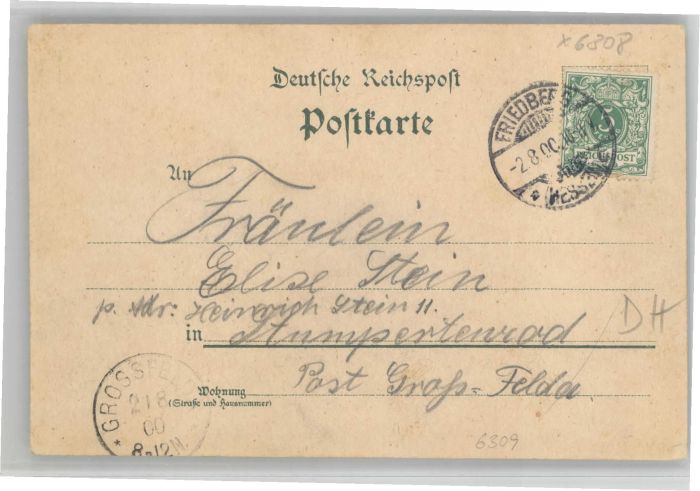 x6308
Deutsche Reichspost
Postkarte
FRIEDBERG
-2.8.00.
(HESSEN)
REICHSPOST
An Fräulein
Elise Stein
p. Adr: Heinrich Stein 11.
in Stumpertenrod
DH
Post Groß-Felda
Wohnung
(Straße und Hausnummer)
* GROSSFEL
2 8
00
8-12N.
6309